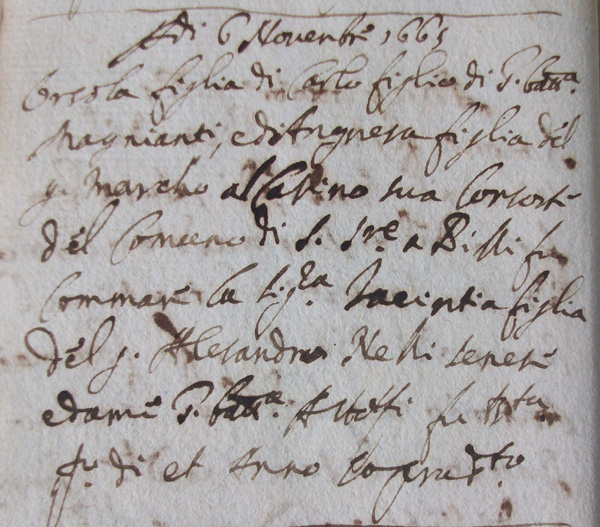 Adi 6 Novembrè 1665
Orsola figlia di Carlo figlio di G. batta.
Magnianti, e di Angnesa figlia dél
q. Marcho al Casino sua Consorte
dél Comuno di S. a Bisli fu
Commarè la Sigra Jacintia figlia
dél q. Alesandro Nelli tenetè
e da mè G. batta. fu
do. di et Anno